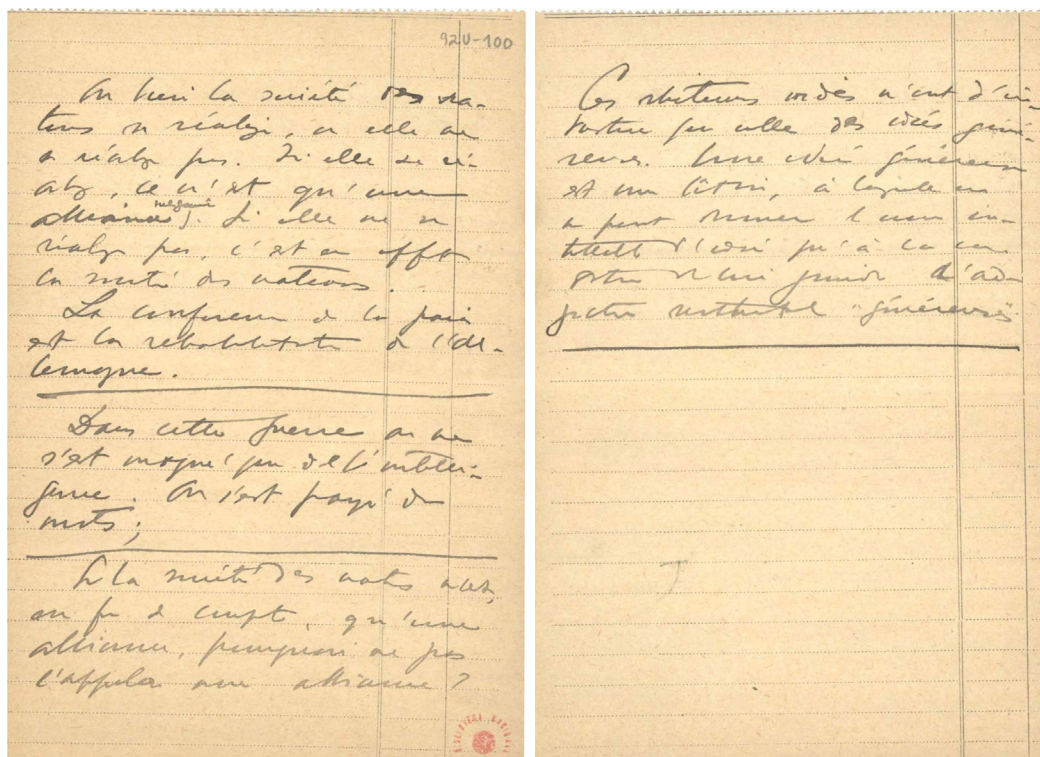 92U-100
Ou bien la société des na-
tions se réalise, ou elle ne
se réalise pas. Si elle se ré-
alise, ce n'est qu'une
alliance. Si elle ne se
réalise pas, c'est en effet
la société des nations.
La conférence de la paix
est la réhabilitation de l'Al-
lemagne.
Dans cette guerre on ne
s'est moqué que de l'intelli-
gence. On s'est payé de
mots;
Si la société des nations n'est,
en fin de compte, qu'une
alliance, pourquoi ne pas
l'appeler une alliance?
Ces rhéteurs vidés n'ont d'in-
vertue que celle des idées géné-
reuses. Une idée généreuse
est une , à laquelle on
ne peut donner le nom in-
tellectuel d'idée qu'à la con-
d'adjectif "généreuse"
BIBLIOTECA